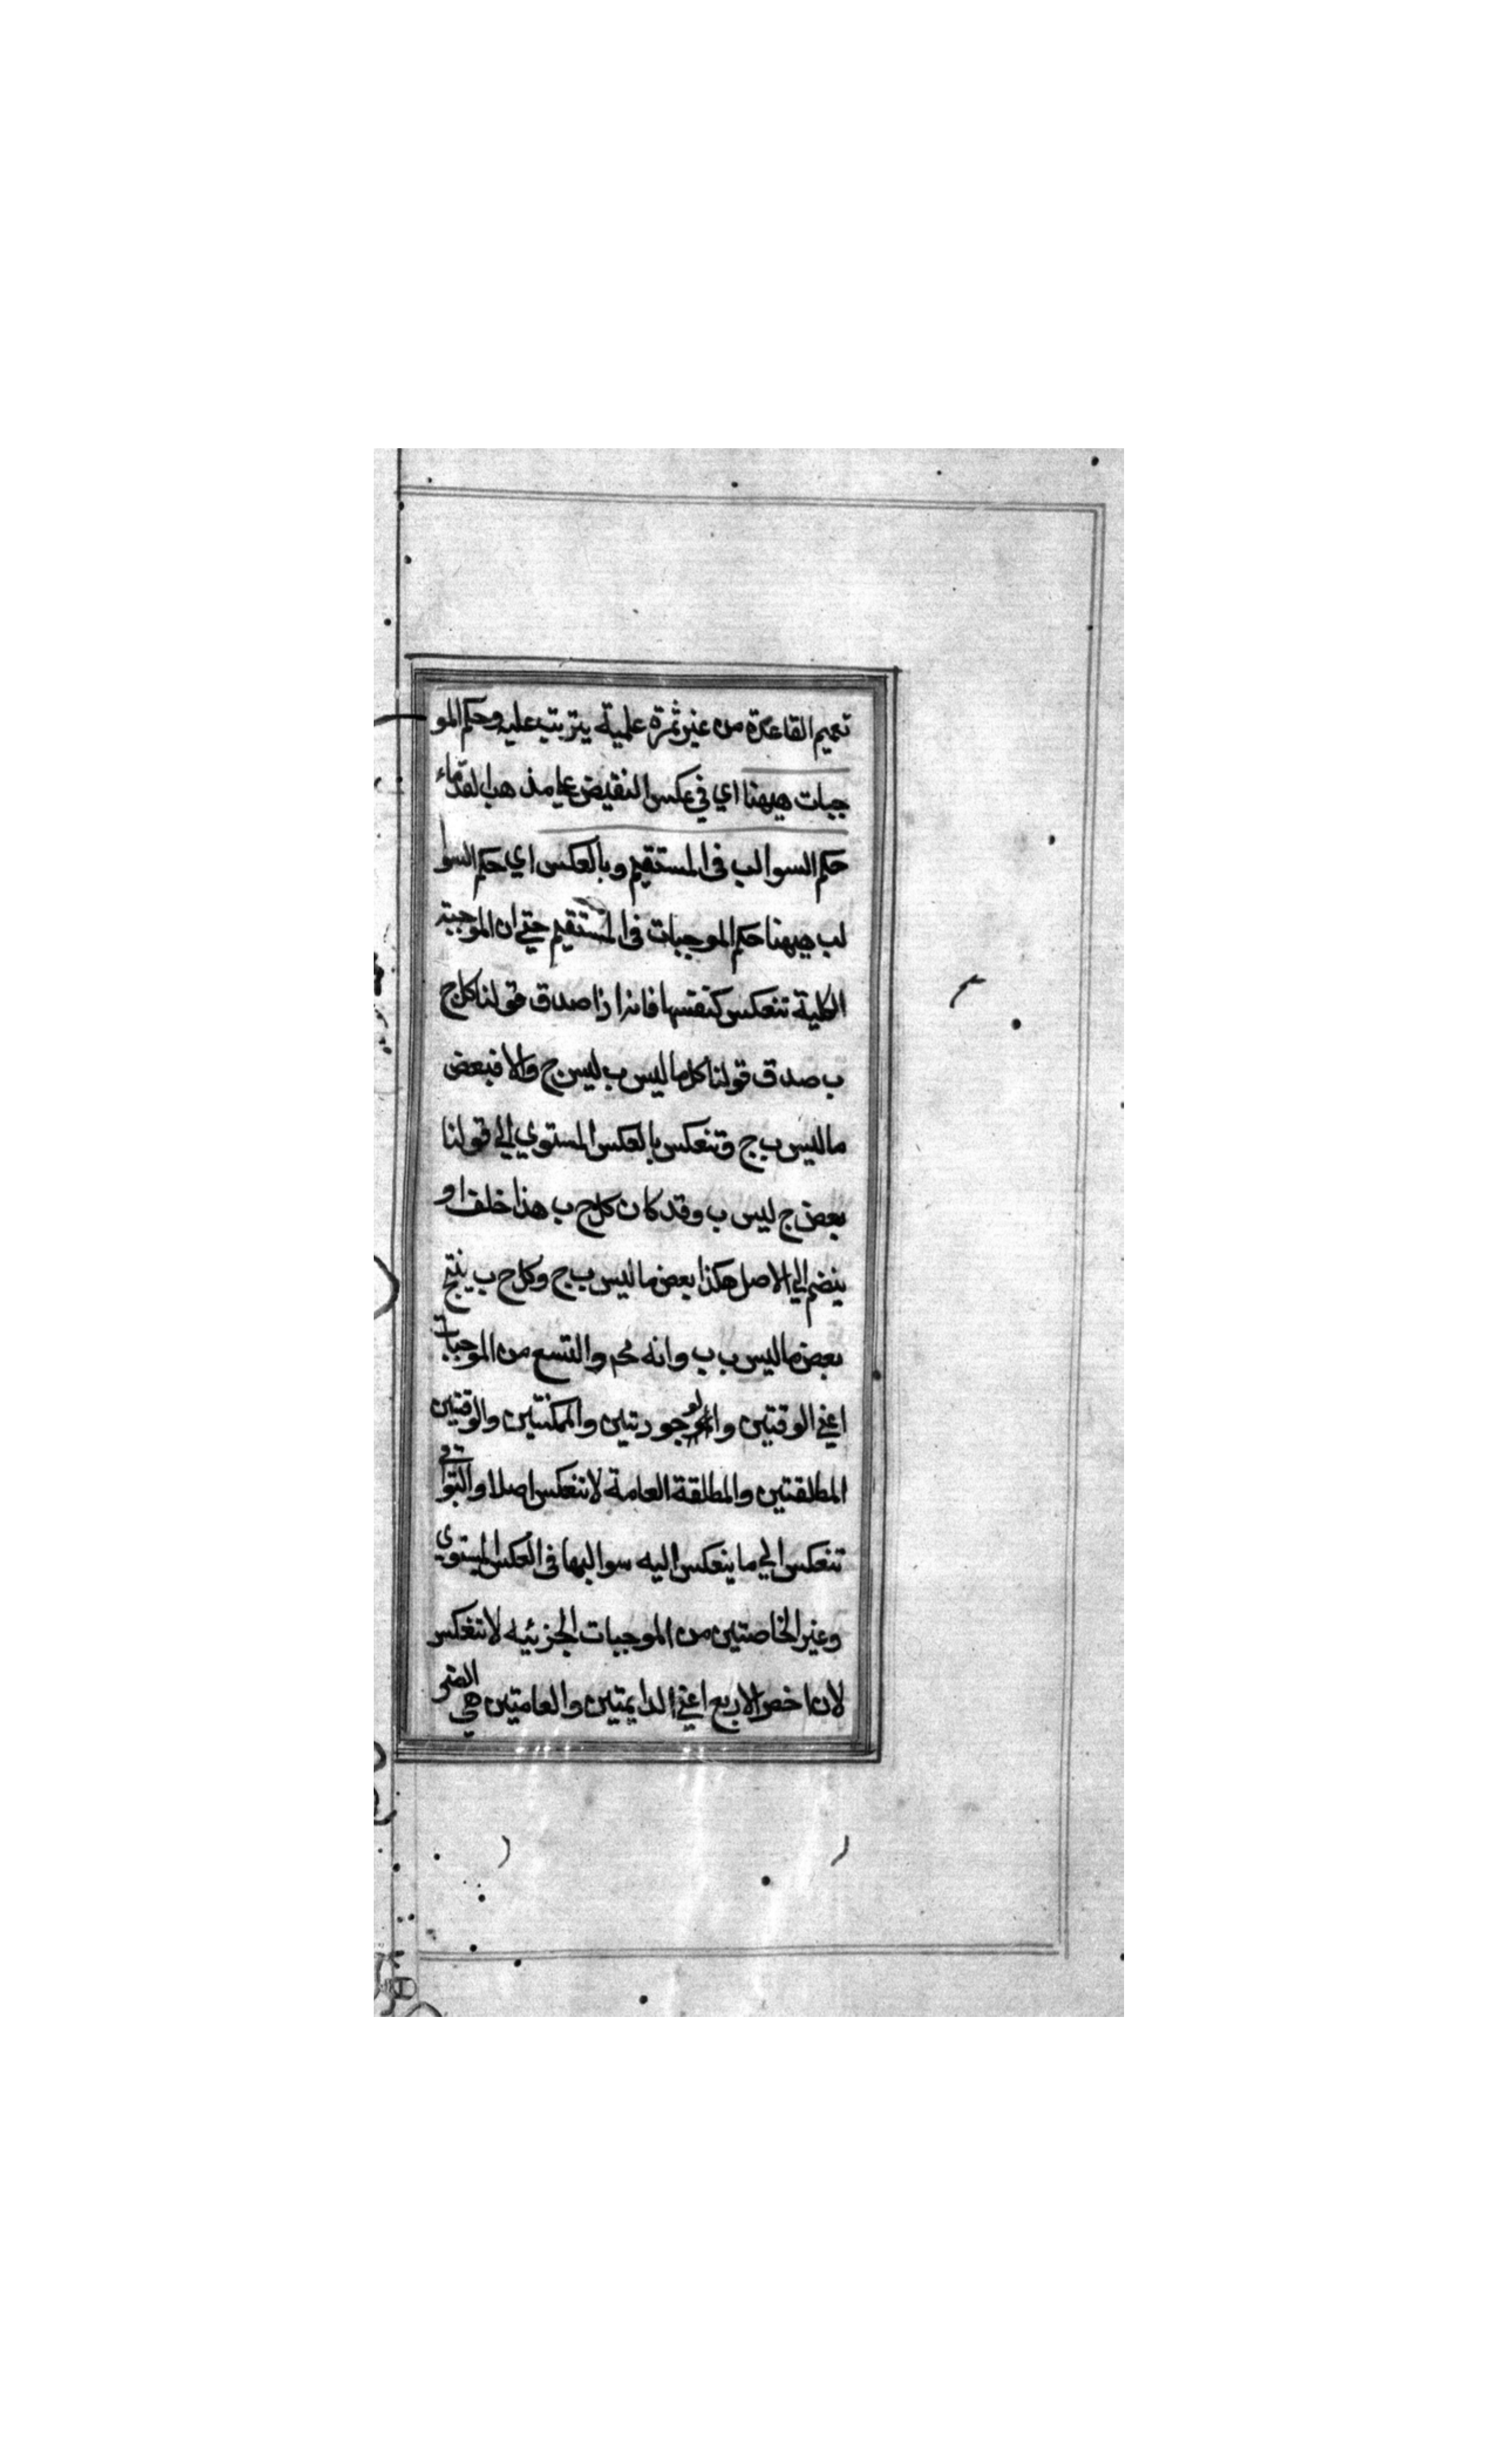 تعميم القاعدة من غير ثمرة علمية يترتب عليه وحكم المو
جبات ههنا اي في عكس النقيض علي مذهب القدماء
حكم السوالب في المستقيم وبالعكس اي حكم السوا
لب ههنا حكم الموجبات في المستقيم حتي ان الموجبة
الكلية تنعكس كنفسها فانه اذا صدق قولنا كل ج
ب صدق قولنا كل ما ليس ب ليس ج والا فبعض
ما ليس ب ج وتنعكس بالعكس المستوي الي قولنا
بعض ج ليس ب وقد كان كل ج ب هذا خلف او
ينضم الي الاصل هكذا بعض ما ليس ب ج وكل ج ب ينتج
بعض ما ليس ب ب وانه مح والتسع من الموجبات
اعني الوقتيتين والوجوديتين والممكنتين والوقتيتين
المطلقتين والمطلقة العامة لا تنعكس اصلا والبواقي
تنعكس الي ما ينعكس اليه سوالبها في العكس المستوي
وغير الخاصتين من الموجبات الجزئيه لا تنعكس
لان اخص الاربع اعني الدايمتين والعامتين هي الضر